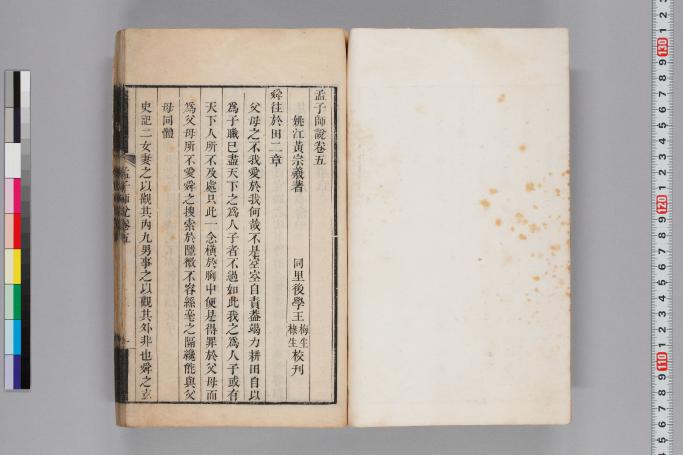 孟子師說卷五
姚江黃宗羲著 同里後學王 梅生 棣生 校刊
舜往於田二章
父母之不我愛於我何哉不是空空自責蓋竭力耕田自以
為子職已盡天下之為人子者不過如此我之為人子或有
天下人所不及處只此一念橫於胸中便是得罪於父母而
為父母所不愛舜之搜索於隱微不容絲毫之隔纔能與父
母同體
史記二女妻之以觀其內九男事之以觀其外非也舜之玄
孟子師說卷五
一